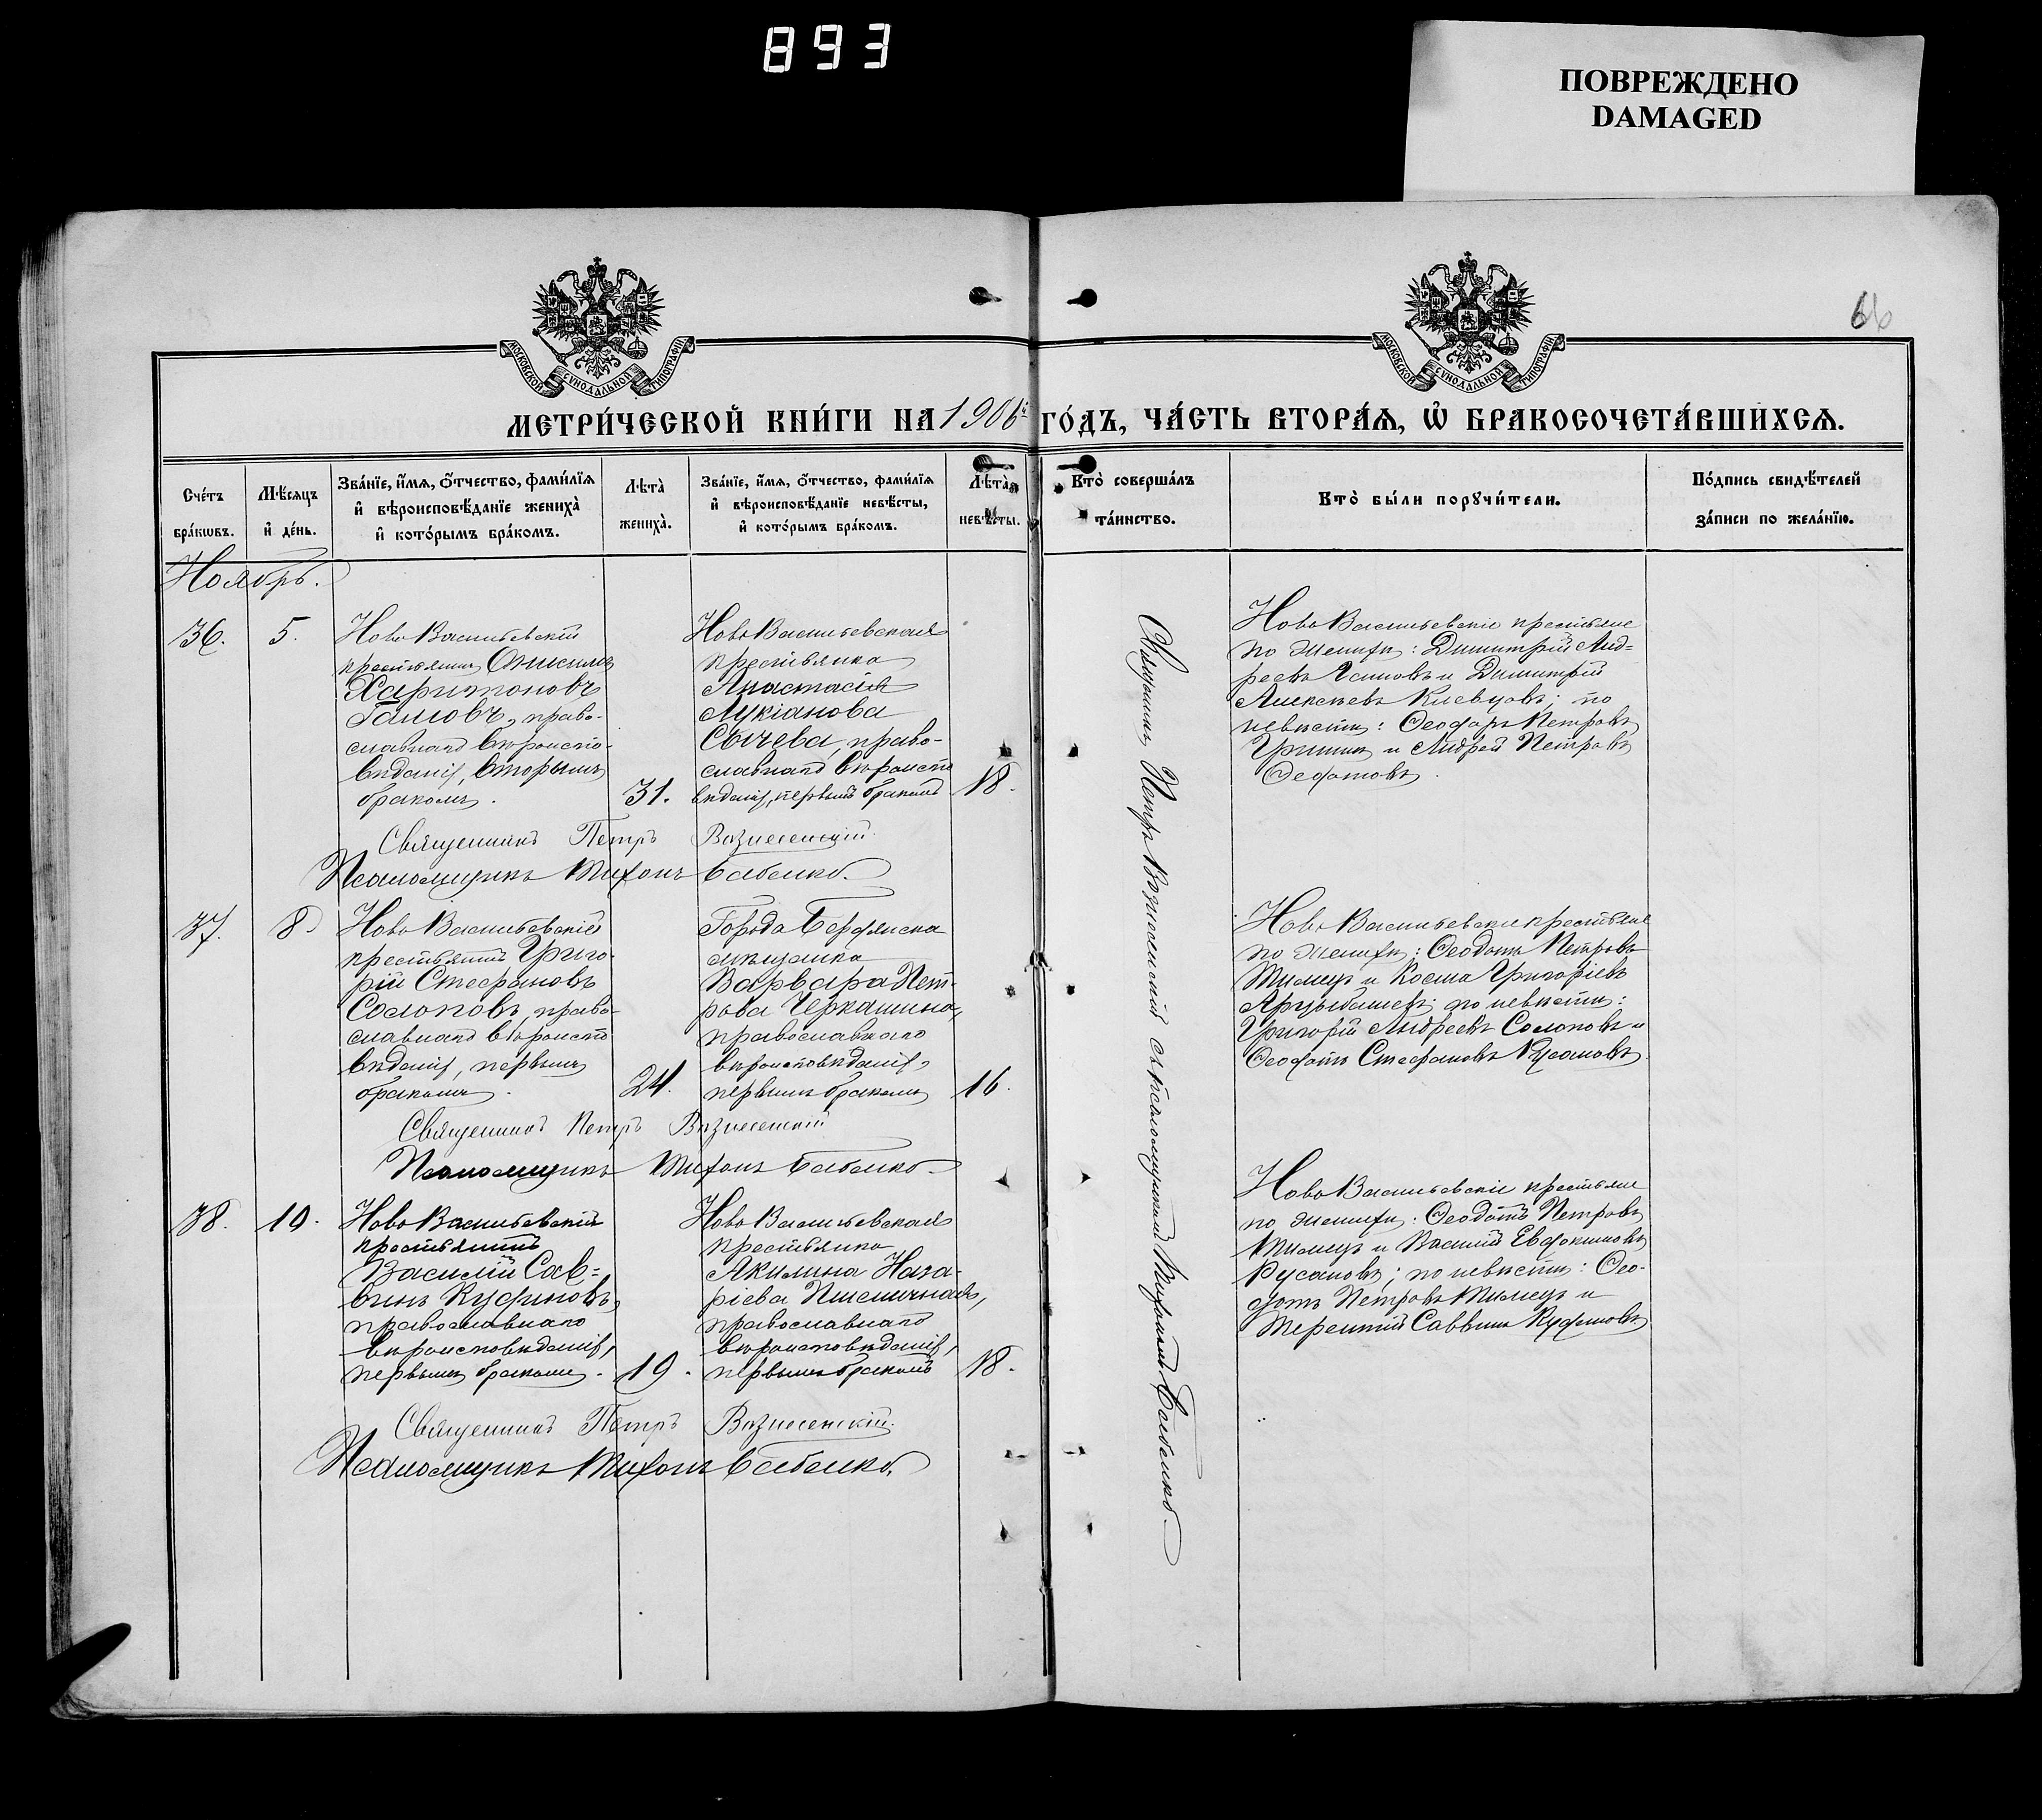 893
ПОВРЕЖДЕНО
DAMAGED
66
МОСКОВСКОЙ СѴНОДАЛЬНОЙ ТИПОГРАФІИ
МОСКОВСКОЙ СѴНОДАЛЬНОЙ ТИПОГРАФІИ
МЕТРИ́ЧЕСКОЙ КНИ́ГИ НА 1906й ГО́ДЪ, ЧА́СТЬ ВТОРА́Ѧ, Ѡ҆ БРАКОСОЧЕТА́ВШИХСѦ.
Сче́тъ
бра́кѡвъ.
Мѣ́сяцъ
и҆ де́нь.
Зва́нїе, и҆́мѧ, ѻ҆́тчество, фами́лїѧ
и҆ вѣроисповѣ́данїе жениха̀
и҆ кото́рымъ бра́комъ.
Лѣта̀
жениха̀.
Зва́нїе, и҆́мѧ, ѻ҆́тчество, фами́лїѧ
и҆ вѣроисповѣ́данїе невѣ́сты,
и҆ кото́рымъ бра́комъ.
Лѣта̀
невѣ́сты.
Кто̀ соверша́лъ
та́инство.
Кто̀ бы́ли порꙋчи́тели.
По́дпись свидѣ́телей
за́писи по жела́нїю.
Ноябрь.
36.
5.
Ново Васильевскій
крестьянинъ Онисимъ
Харитоновъ
Галковъ, право-
славнаго вѣроиспо-
вѣданія, вторымъ
бракомъ.
31.
Ново Васильевская
крестьянка
Анастасія
Лукіанова
Сычева, право-
славнаго вѣроиспо
вѣданія, первымъ бракомъ
18.
Ново Васильевскіе крестьяне
по женихѣ: Димитрій Анд-
реевъ и Димитрій
Алексѣевъ Киевцовъ; по
невѣстѣ: Ѳеодоръ Петровъ
Гришин и Андрей Петровъ
Священникъ Петръ Вознесенскій.
Псаломщикъ Тихонъ Бабенко.
37.
8
Ново Васильевскій
крестьянинъ Григо-
рій Стефановъ
Солоповъ, право-
славнаго вѣроиспо
вѣданія, первымъ
бракомъ.
24.
Города Бердянска
мѣщанка
Варвара Пет-
рова Черкашина,
православнаго
вѣроисповѣданія,
первымъ бракомъ
16.
Ново Васильевскіе крестьяне
по женихѣ: Ѳеодотъ Петровъ
и Косма Григоріевъ
по невѣстѣ:
Григорій Андреевъ Солоповъ и
Стефановъ Русановъ
Священникъ Петръ Вознесенскій
Псаломщикъ Тихонъ Бабенко
38.
10.
Ново Васильевскій
крестьянинъ
Василій Сав-
винъ Куфиновъ,
православнаго
вѣроисповѣданія,
первымъ бракомъ.
19.
Ново Васильевская
крестьянка
Акилина Наза-
ріева Пшеничная,
православнаго
вѣроисповѣданія,
первымъ бракомъ
18.
Ново Васильевскіе крестьяне
по женихѣ: Ѳеодотъ Петровъ
и Василій Евдокимовъ
Русановъ; по невѣстѣ: Ѳео-
дотъ Петровъ и
Терентій Саввинъ Куфиновъ
Священникъ Петръ Вознесенскій.
Псаломщикъ Тихонъ Бабенко.
Священникъ Петръ Вознесенскій съ псаломщикомъ Тихономъ Бабенко